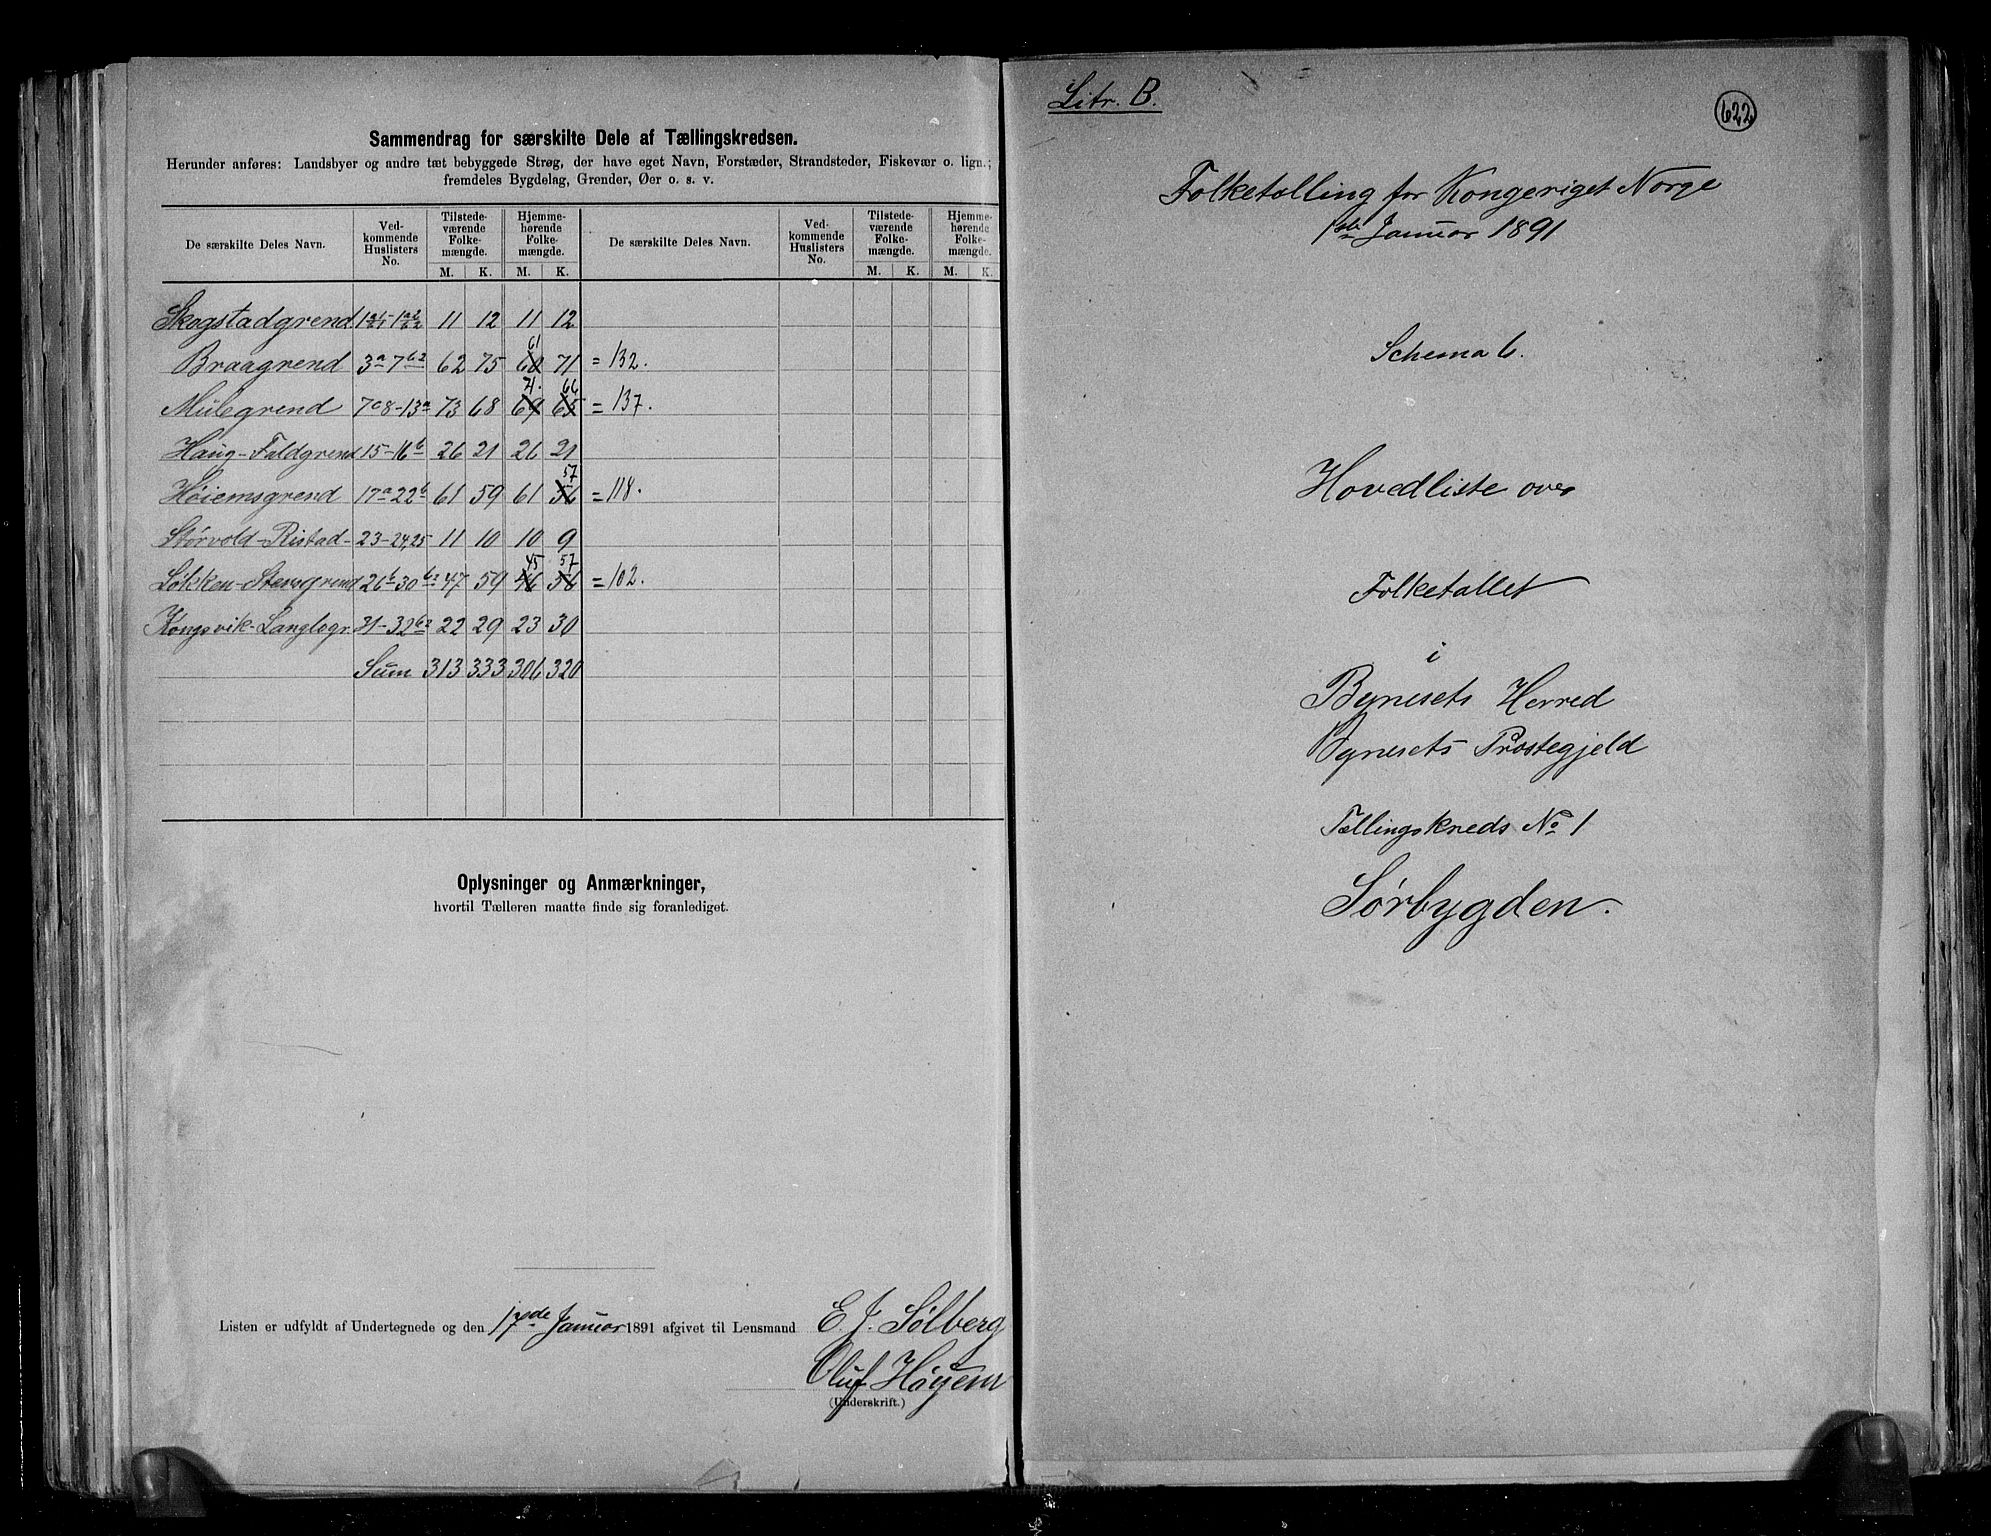 Sammendrag for særskilte Dele af Tællingskredsen.
Herunder anføres: Landsbyer og andre tæt bebyggede Strøg, der have eget Navn, Forstæder, Strandsteder, Fiskevær o. lign.;
fremdeles Bygdelag, Grender, Øer o. s. v.
De særskilte Deles Navn. Ved-kommende Huslisters No. Tilstede-værende Folke-mængde. Hjemme-hørende Folke-mængde. De særskilte Deles Navn. Ved-kommende Huslisters No. Tilstede-værende Folke-mængde. Hjemme-hørende Folke-mængde.
M. K. M. K. M. K. M. K.
Skogstadgrend 11 12 11 12
61
Braagrend 3a-7b2 62 75 60 71 = 132.
71. 66
Mulegrend 7b8-13a 73 68 69 65 = 137.
Haug-Faldgrend 15-16b 26 21 26 21
57
Høiemsgrend 17a-22b 61 59 61 56 = 118.
Størvold-Ristad- 23-24,25 11 10 10 9
45 57
Løkken-Stensgrend 26b-30b2 47 59 46 56 = 102.
Kongsvik-Langlogr. 31-32b2 22 29 23 30
Sum 313 333 306 320
Oplysninger og Anmærkninger,
hvortil Tælleren maatte finde sig foranlediget.
Listen er udfyldt af Undertegnede og den 17de Januar 1891 afgivet til Lensmand E. J. Sølberg
Oluf Høyem
(Underskrift.)
Litr. B.
622
Folketælling for Kongeriget Norge
1ste Januar 1891
Schema 6.
Hovedliste over
Folketallet
i
Bynesets Herred
Bynesets Præstegjeld
Tællingskreds No 1
Sørbygden.